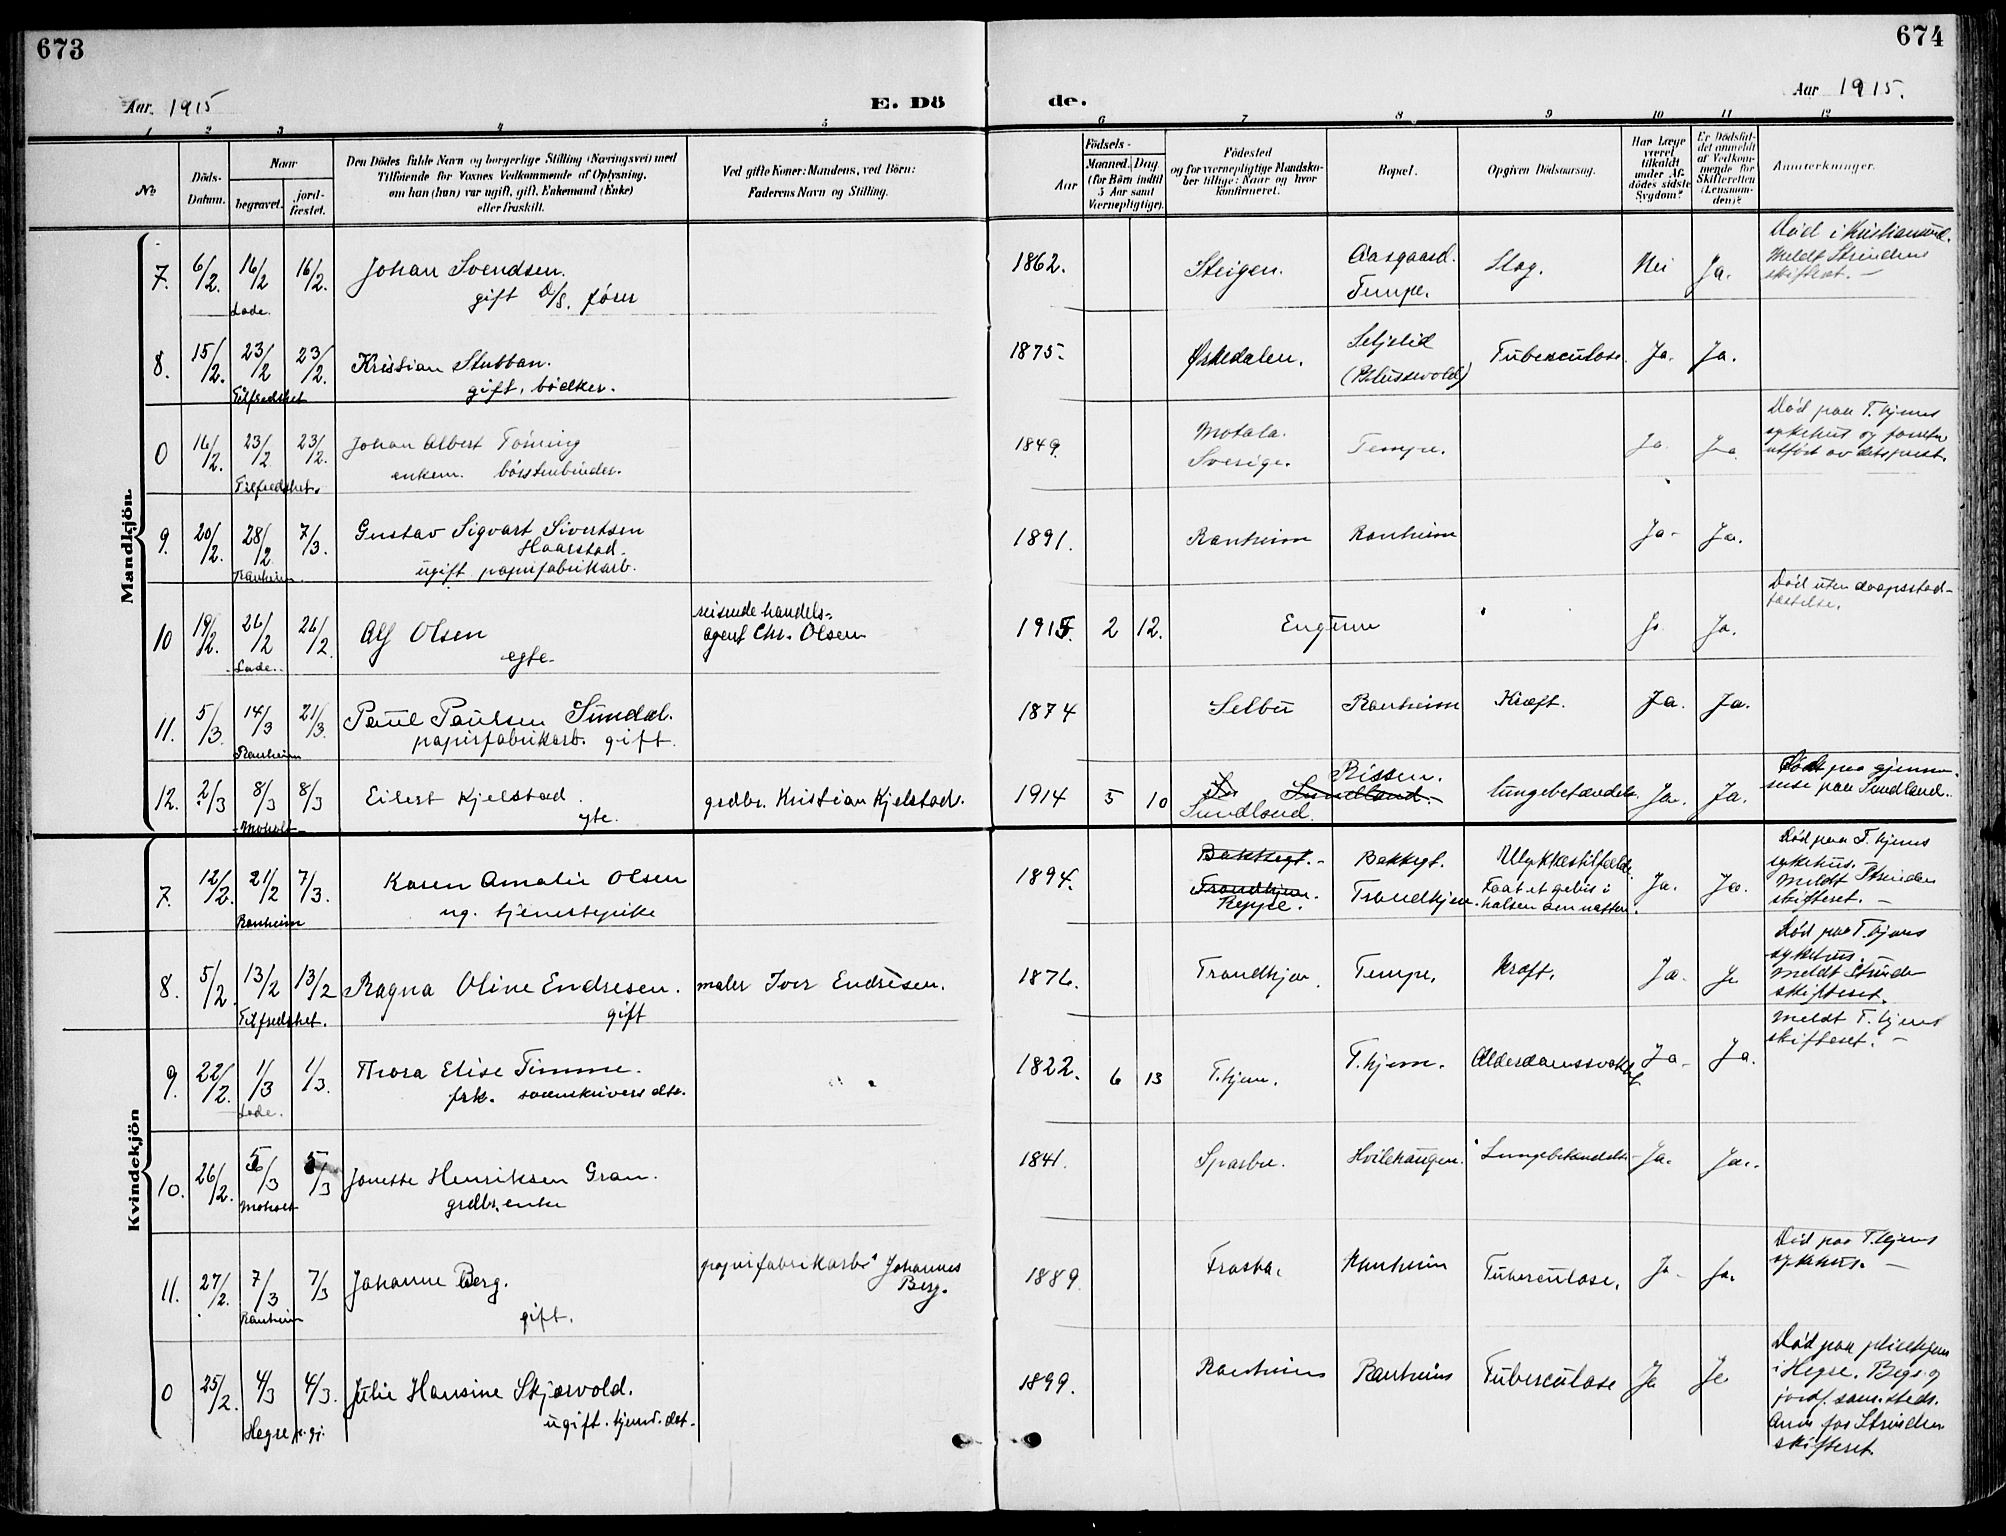 673
674
Aar 1915
E. Dö
de.
Aar 1915.
1 2 3 4 5 6 7 8 9 10 11 12
No
Döds-Datum.
Naar
begravet.
jord-fæstet.
Den Dödes fulde Navn og borgerlige Stilling (Næringsvei) med
Tilföiende for Voxnes Vedkommende af Oplysning,
om han (hun) var ugift, gift, Enkemand (Enke)
eller fraskilt.
Ved gifte Koner: Mandens, ved Börn:
Faderens Navn og Stilling.
Födsels-
Aar
Maaned.
Dag
(for Börn indtil
5 Aar samt
Værnepligtige).
Födested
og for værnepligtige Mandska-
ber tillige: Naar og hvor
konfirmeret.
Bopæl.
Opgiven Dödsaarsag.
Har Læge
været
tilkaldt
under Af-
dödes sidste
Sygdom?
Er Dödsfal-
det anmeldt
af Vedkom-
mende for
Skifteretten
(Lensman-
den)?
Anmerkninger.
Mandkjön
7. 6/2. 16/2 Lade. 16/2. Johan Svendsen.
gift D/S. fører
1862. Steigen. Aasgaard.
Tempe. Slag. Nei Ja. Død i Kristiansund.
Meldt Strinden
skifteret. —
8. 15/2. 23/2 Tilfredshet 23/2. Kristian Stubban.
gift, bødker.
1875. Ørkedalen. Seljelid
Tuberculose. Ja. Ja.
0 16/2. 23/2 Tilfredshet. 23/2. Johan Albert
enkem. børstenbinder.
1849. Motala.
Sverige. Tempe. Ja. Ja Død paa T.hjems
sykehus og
utført av dets prest.
9. 20/2. 28/2 Ranheim 7/3. Gustav Sigvart Sivertsen
Haarstad.
ugift papirfabrikarb.
1891. Ranheim Ranheim Ja. Ja.
10 19/2. 26/2 Lade. 26/2. Alf Olsen
egte.
reisende handels-
agent Chr. Olsen
1915. 2 12. Engtun Ja. Ja. Død uten daapsstad-
fæstelse.
11. 5/3. 14/3 Ranheim 21/3. Paul Paulsen Sundal.
papirfabrikarb. gift.
1874 Selbu Ranheim Kræft. Ja. Ja.
12. 2/3 8/3 Moholt 8/3 Eilert Kjelstad.
egte.
grdbr. Kristian Kjelstad.
1914 5 10 Sundland.
Sundland. Rissen. Lungebetændelse Ja. Ja. Død paa gjennem-
reise paa Sundland.
Kvindekjön
7. 12/2. 21/2 Ranheim 7/3. Karen Amalie Olsen
ug. tjenestepike
1894. Bakkegt.
Trondhjem.
Reppe. Bakkegt.
Trondhjem. Ulykkestilfælde.
Faat et gebis i
halsen om natten. Ja. Ja. Død paa T.hjems
sykehus. —
Meldt Strinden
skifteret. —
8. 5/2. 13/2 Tilfredshet. 13/2 Ragna Oline Endresen.
gift
maler Iver Endresen.
1876. Trondhjem. Tempe. Kræft. Ja. Ja Død paa T.hjems
sykehus. —
Meldt Strinden
skifteret.
9. 22/2. 1/3 Lade. 1/3. Thora Elise Timme.
frk. sorenskrivers dtr.
1822. 6 13 T.hjem. T.hjem. Alderdomssvakhet Ja. Ja. Meldt T.hjems
skifteret. —
10. 26/2. 5/3 Moholt 5/3 Jonette Henriksen Gran.
grdbr. enke
1841. Sparbu. Hvilehaugen. Lungebetændelse Ja. Ja.
11. 27/2. 7/3 Ranheim 7/3 Johanne Berg.
gift.
papirfabrikarb. Johannes
Berg.
1889. Frosta. Ranheim Tuberculose. Ja Ja. Død paa T.hjems
sykehus. —
0 25/2. 4/3 Hegre k.gj. 4/3. Julie Hansine Skjærvold.
ugift. hjemv. dat.
1899. Ranheim Ranheim Tuberculose Ja Ja Død paa pleiehjem
i Hegre. Begr. og
jordf. samsteds.
Anm. for Strinden
skifteret.